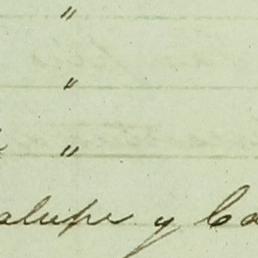 "
"
"
alupe y Ca